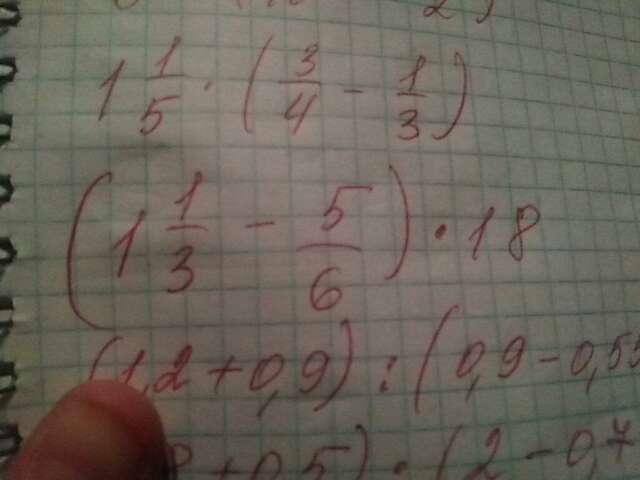 2)
1 1/5 · (3/4 - 1/3)
(1 1/3 - 5/6) · 18
(1,2 + 0,9) : (0,9 - 0,55
8 + 0,5) · (2 - 0,7